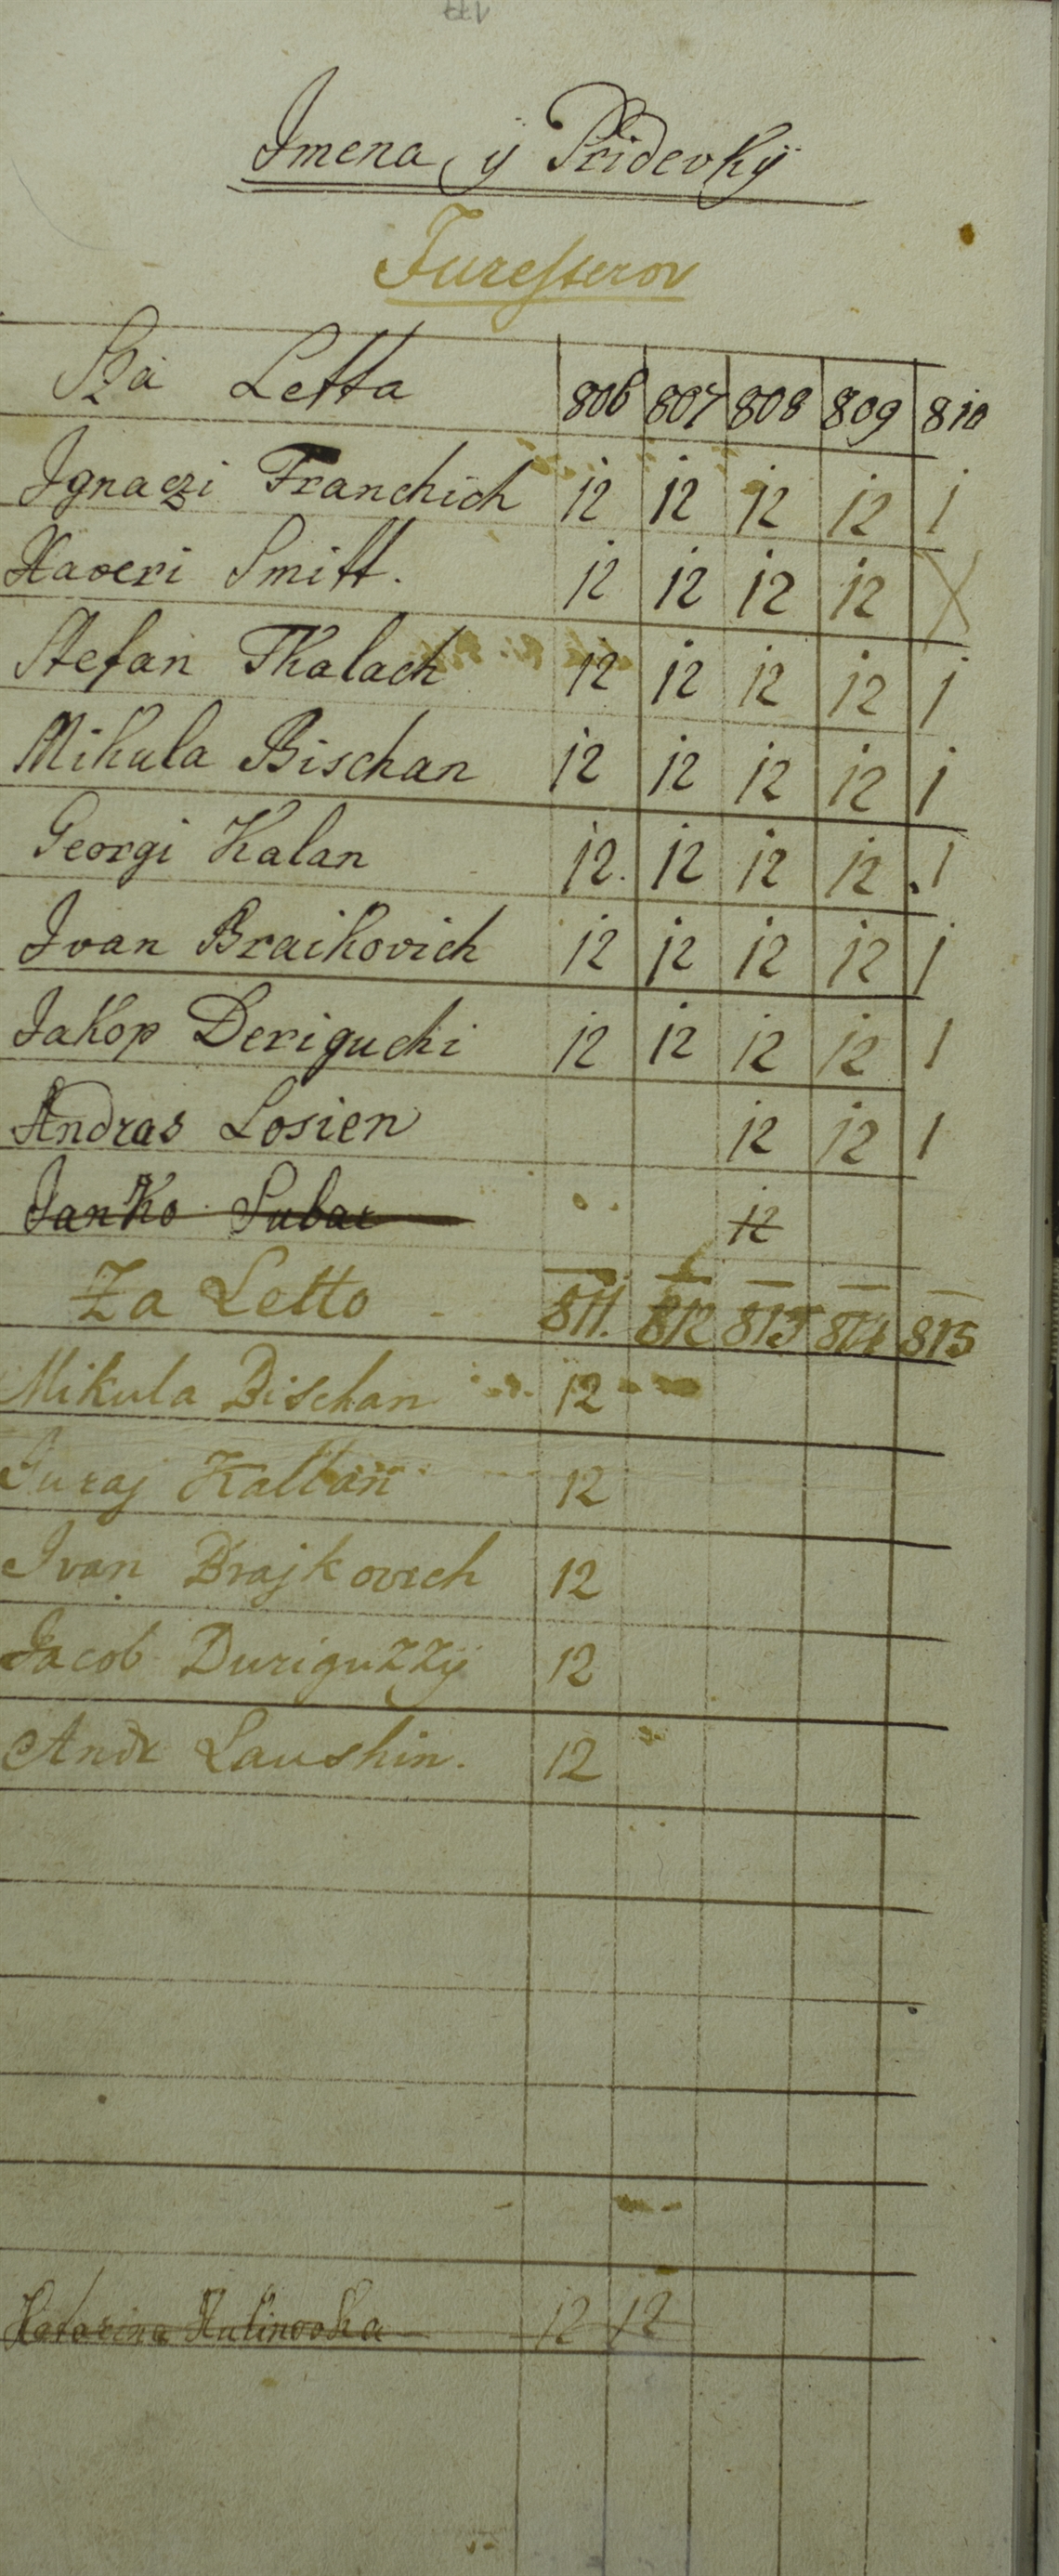 Imena ij Pridevkij
Furesterov
Sza Letta 806 807 808 809 810
Ignaczi Franchich 12 12 12 12 1
Xaveri Smitt. 12 12 12 12 X
Stefan Tkalach 12 12 12 12 1
Mikula Bischan 12 12 12 12 1
Georgi Kalan 12. 12 12 12 . 1
Ivan Braikovich 12 12 12 12 1
Jakop Deriguchi 12 12 12 12 1
Andras Losien 12 12 1
Janko Subar 12
Za Letto 811. 812 813 814 815
Mikula Bischan 12
Juraj Kallan 12
Ivan Brajkovich 12
Jacob Duriguzzÿ 12
Andr Laushin. 12
Katarina 12 12